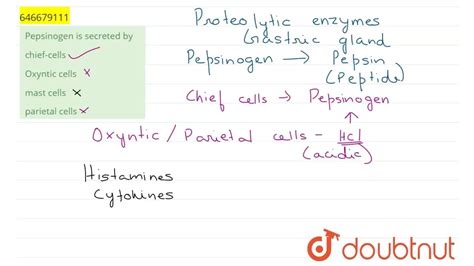 646679111
Pepsinogen is secreted by
chief-cells
Oxyntic cells
mast cells
parietal cells
Proteolytic enzymes
Gastric gland
Pepsinogen → Pepsin
(Peptide)
Chief cells → Pepsinogen
↑
Oxyntic / Parietal cells - HCl
(acidic)
Histamines
Cytokines
doubtnut